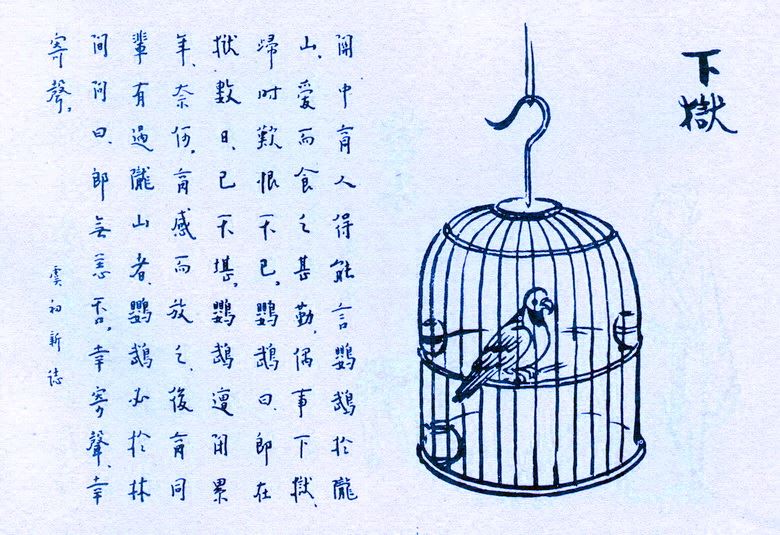 下獄
関中商人得能言鸚鵡於隴
山、愛而食之甚勤、偶事下獄、
歸時歎恨不已。鸚鵡曰、郎在
獄數日、已不堪。鸚鵡遭閉累
年、奈何。商感而放之。後商同
輩有過隴山者、鸚鵡必於林
間問曰、郎無恙否。幸寄聲、幸
寄聲。
虞初新誌